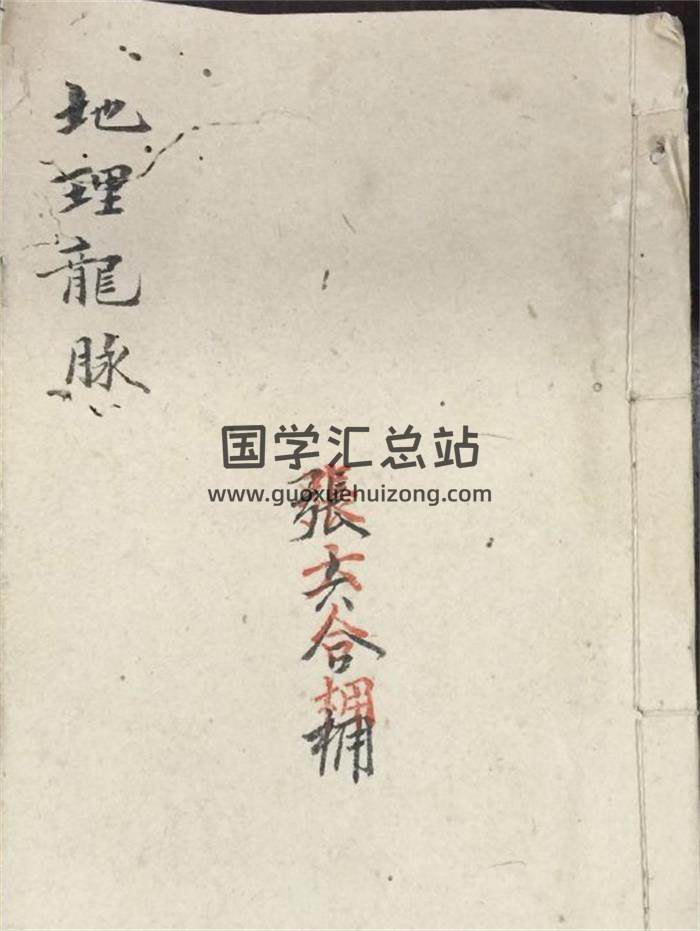 地理龍脉
国学汇总站
www.guoxuehuizong.com
張六合